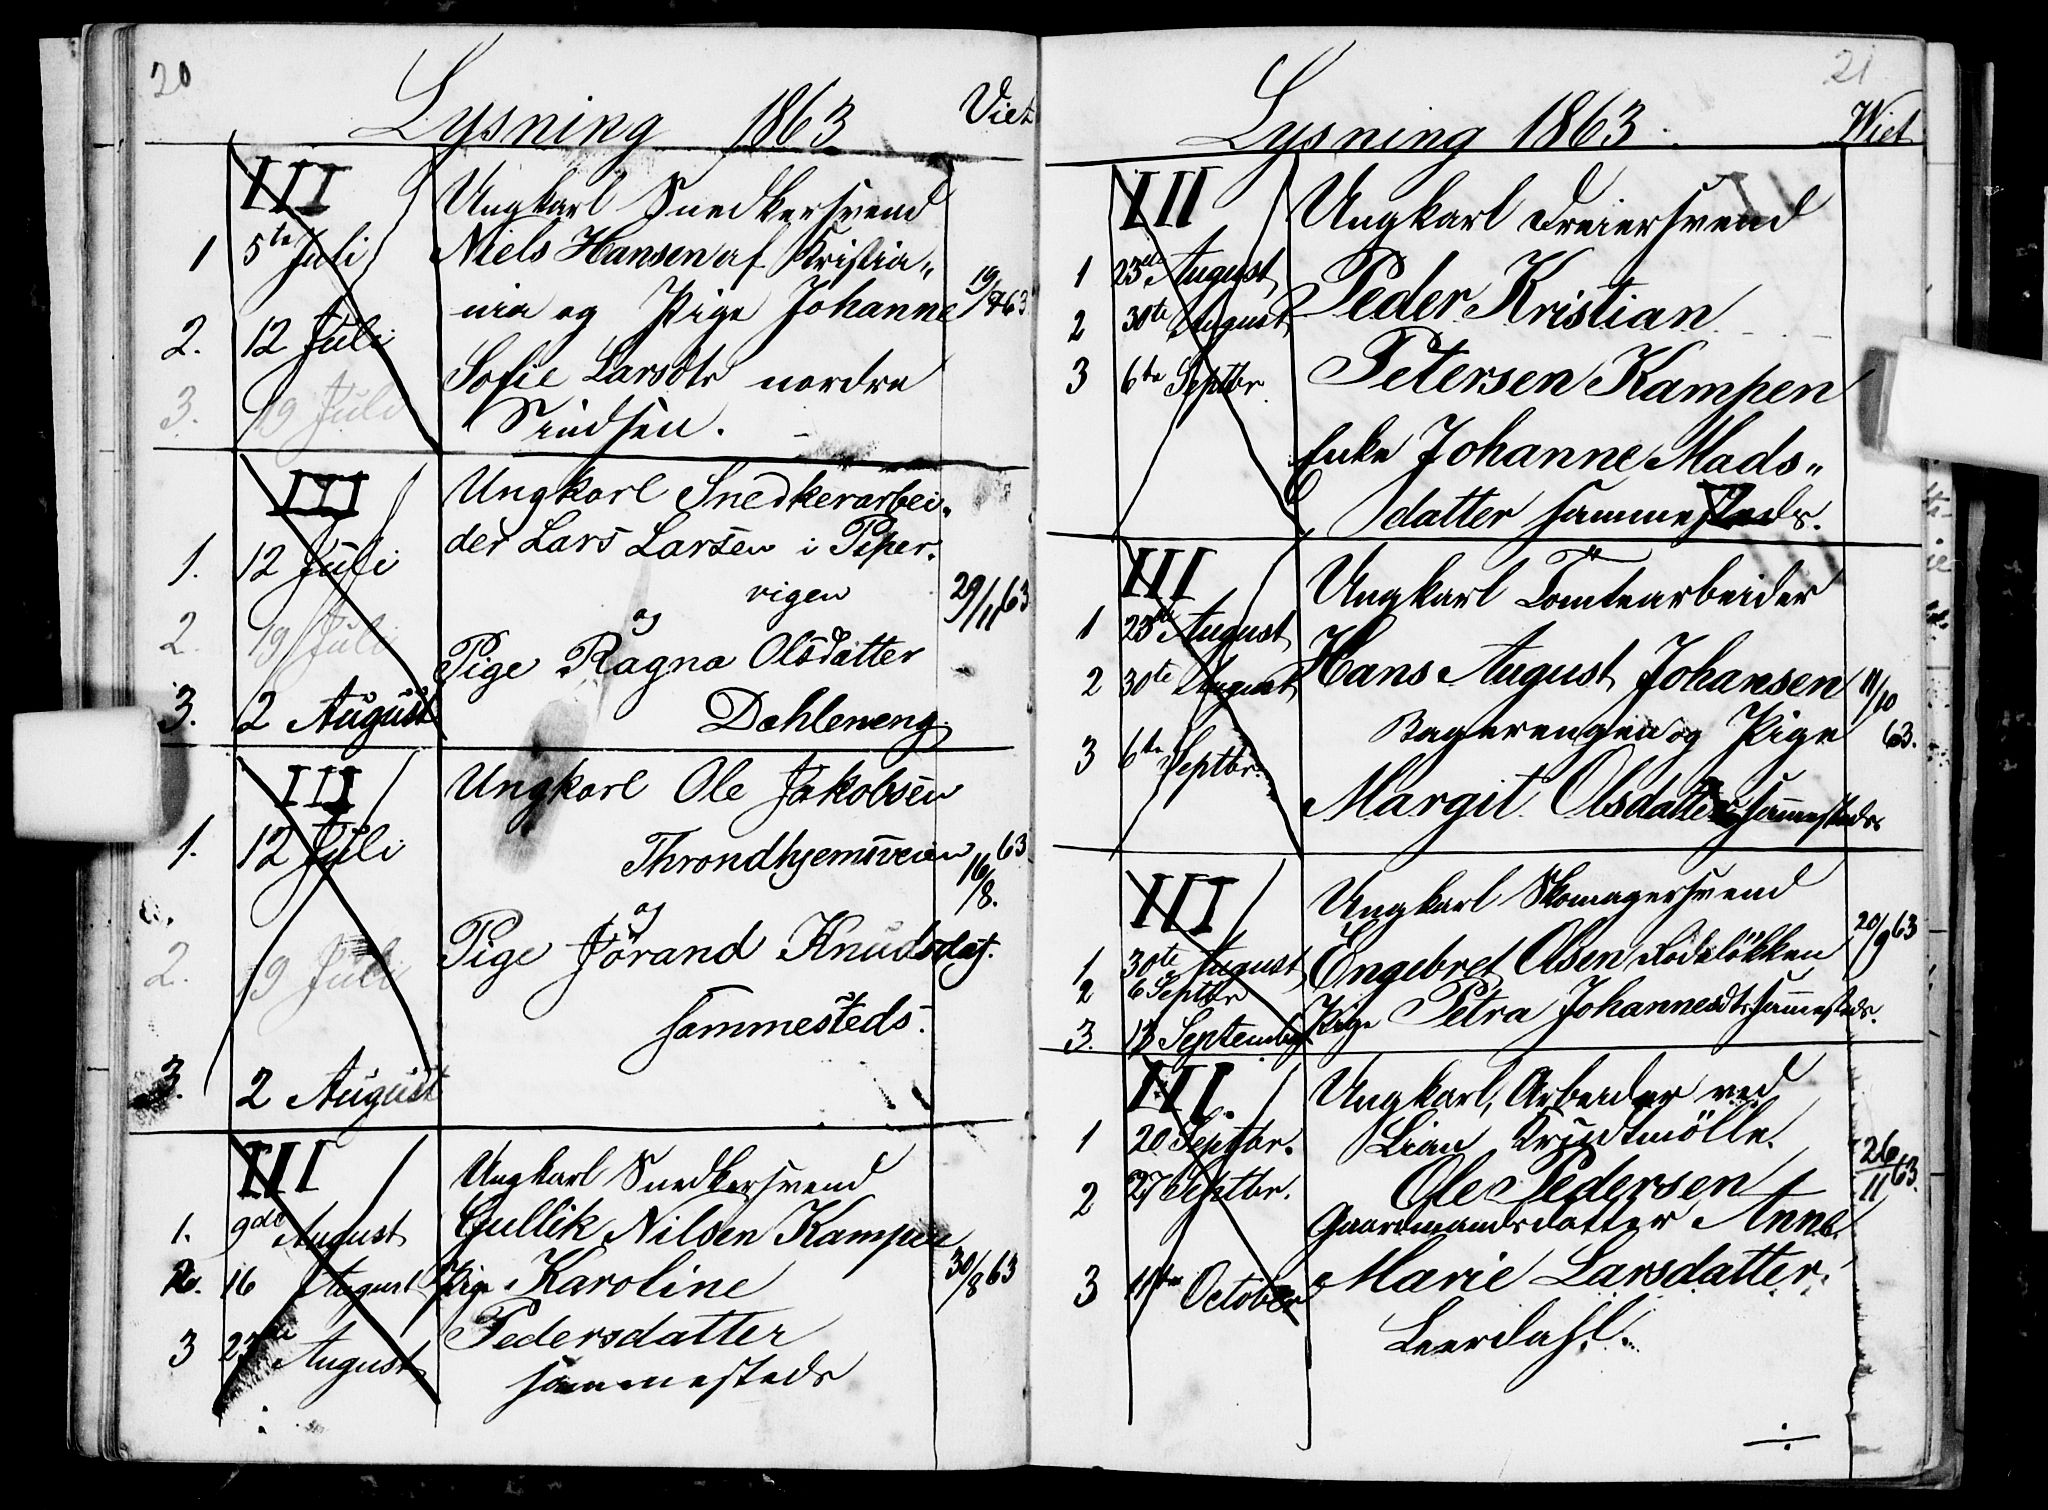 20
Lysning 1863
Viet
III
1 5te Juli
2. 12 Juli
3. 19 Juli
Ungkarl Snedkersvend
Niels Hansen af Kristia„
nia og Pige Johanne
Sofie Larsdtr nordre
Sindsen.
19/7 63
III
1. 12 Juli
2. 19 Juli
3. 2 August
Ungkarl Snedkerarbei„
der Lars Larsen i Piper„
vigen
og
Pige Ragna Olsdatter
Dahleneng.
29/11 63
III
1. 12 Juli
2. 19 Juli
3. 2 August
Ungkarl Ole Jakobsen
Throndhjemsveien
og
Pige Jörand Knudsdat.
sammesteds.
63
16/8.
III
1. 9de August
2. 16 August
3 23de August
Ungkarl Snedkersvend
Gullik Nilsen Kampen
Pige Karoline
Pedersdatter
sammesteds
30/8 63
21
Lysning 1863.
Wiet
III
1 23de August
2 30te August
3 6te Septbr.
Ungkarl Dreiersvend
Peder Kristian
Petersen Kampen
Enke Johanne Mads„
datter sammesteds.
III
1 23de August
2 30te August
3 6te Septbr.
Ungkarl Tomtearbeider
Hans August Johansen
Bagerengen og Pige
Margit Olsdatter sammesteds
11/10
63.
III
1 30te August
2 6 Septbr
3. 13 September
Ungkarl Skomagersvend
Engebret Olsen Rodeløkken
Pige Petra Johannesdtr sammesteds.
20/9 63
III.
1 20 Septbr.
2 27 Septbr.
3 11te October
Ungkarl, Arbeider ved
Lian
Ole Pedersen
Gaardmandsdatter Anne
Marie Larsdatter.
Leerdahl.
26/11 63.